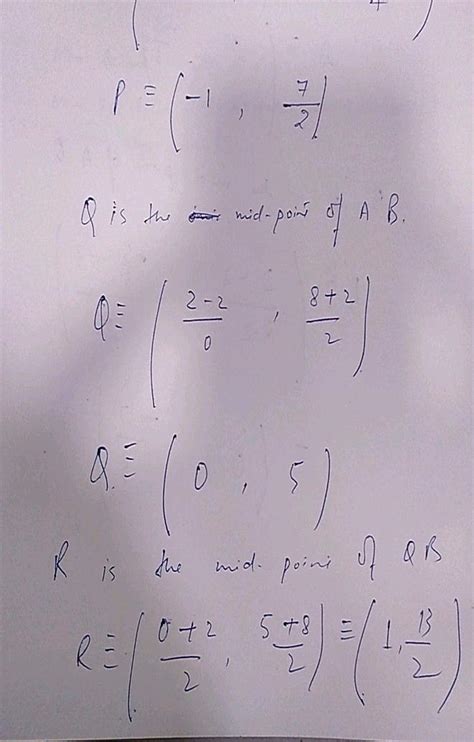 4
P ≡ (-1 , 7/2)
Q is the mid-point of A B.
Q ≡ ( (2-2)/0 , (8+2)/2 )
Q ≡ ( 0 , 5 )
R is the mid-point of QB
R ≡ ( (0+2)/2 , (5+8)/2 ) ≡ ( 1, 13/2 )